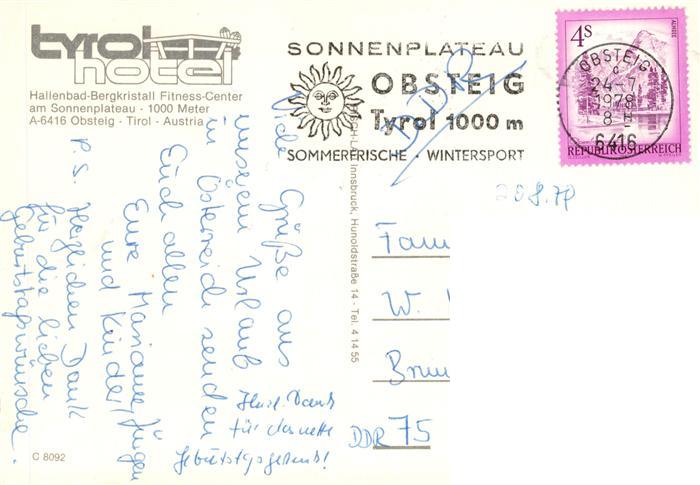 tyrol
hotel
Hallenbad-Bergkristall Fitness-Center
am Sonnenplateau - 1000 Meter
A-6416 Obsteig - Tirol - Austria
SONNENPLATEAU
OBSTEIG
Tyrol 1000 m
SOMMERFRISCHE · WINTERSPORT
4S
ALMSEE
REPUBLIK ÖSTERREICH
OBSTEIG
c
24.-7
1978
8
6416
DDR
20.8.78
Viele Grüße aus
unserem Urlaub
in Österreich senden
Euch allen
Eure Marianne, Jürgen
und Kinder
P.S. Herzlichen Dank
für die lieben
Geburtstagswünsche.
Herzl. Dank
für das nette
Geburtstagsgeschenk!
Innsbruck, Hunoldstraße 14 - Tel. 4 14 55
Fam
W.
DDR 75
C 8092